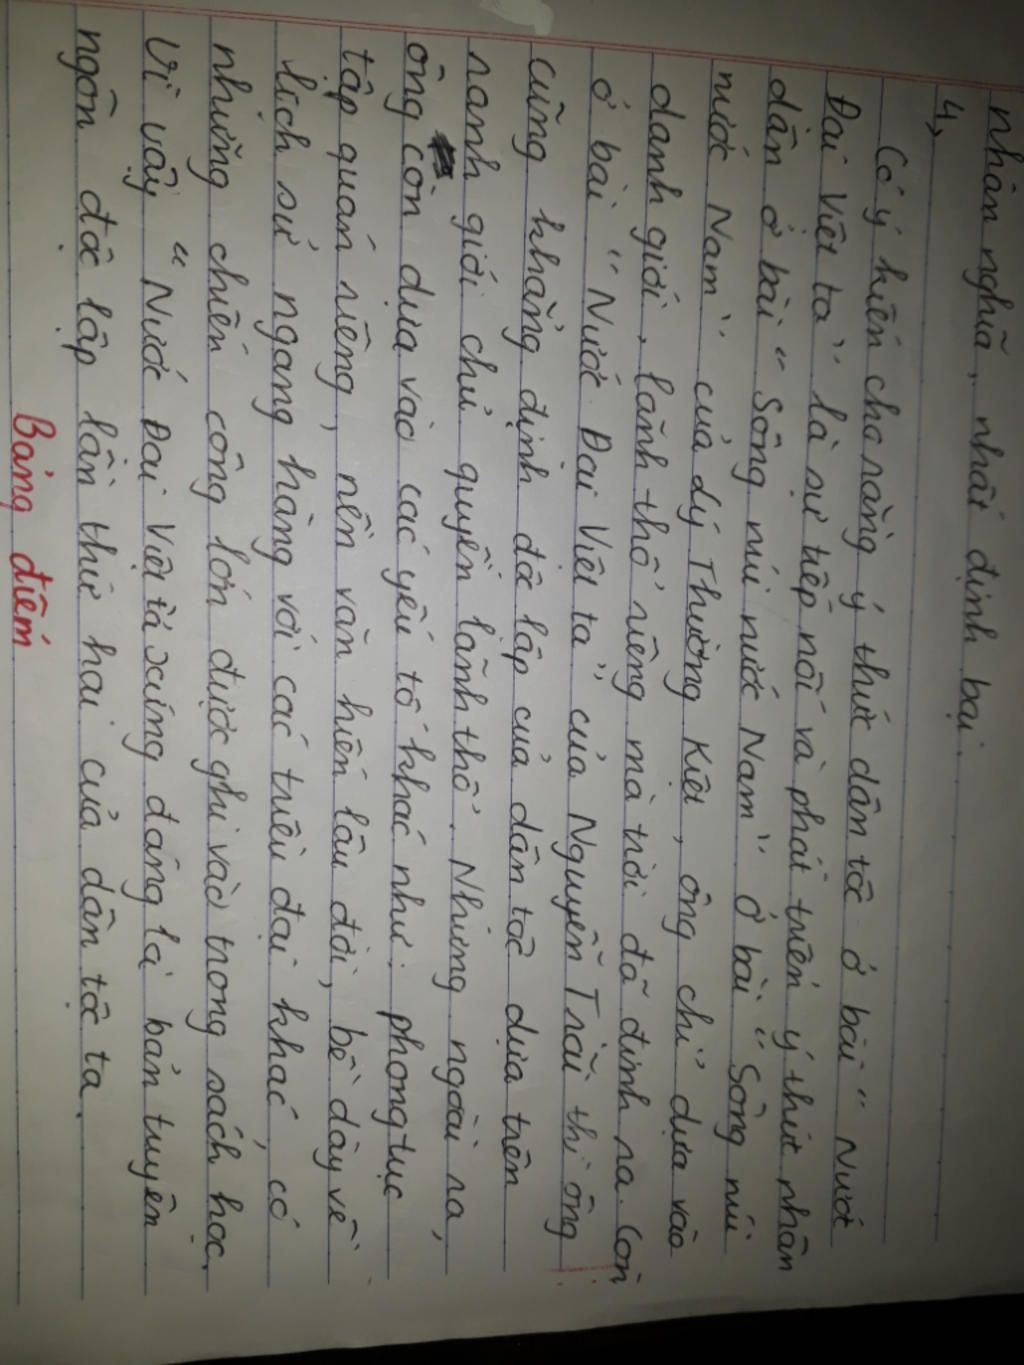 nhân nghĩa, nhất định bại.
4,
Có ý kiến cho rằng ý thức dân tộc ở bài "Nước
Đại Việt ta" là sự tiếp nối và phát triển ý thức nhân
dân ở bài "Sông núi nước Nam" ở bài "Sông núi
nước Nam" của Lý Thường Kiệt, ông chỉ dựa vào
danh giới, lãnh thổ riêng mà trời đã định ra. Còn
ở bài "Nước Đại Việt ta" của Nguyễn Trãi thì ông
cũng khẳng định độc lập của dân tộc dựa trên
ranh giới chủ quyền lãnh thổ. Nhưng ngoài ra,
ông còn dựa vào các yếu tố khác như: phong tục
tập quán riêng, nền văn hiến lâu đời, bề dày về
lịch sử ngang hàng với các triều đại khác, có
những chiến công lớn được ghi vào trong sách học.
Vì vậy "Nước Đại Việt ta xứng đáng là bản tuyên
ngôn độc lập lần thứ hai của dân tộc ta.
Bảng điểm